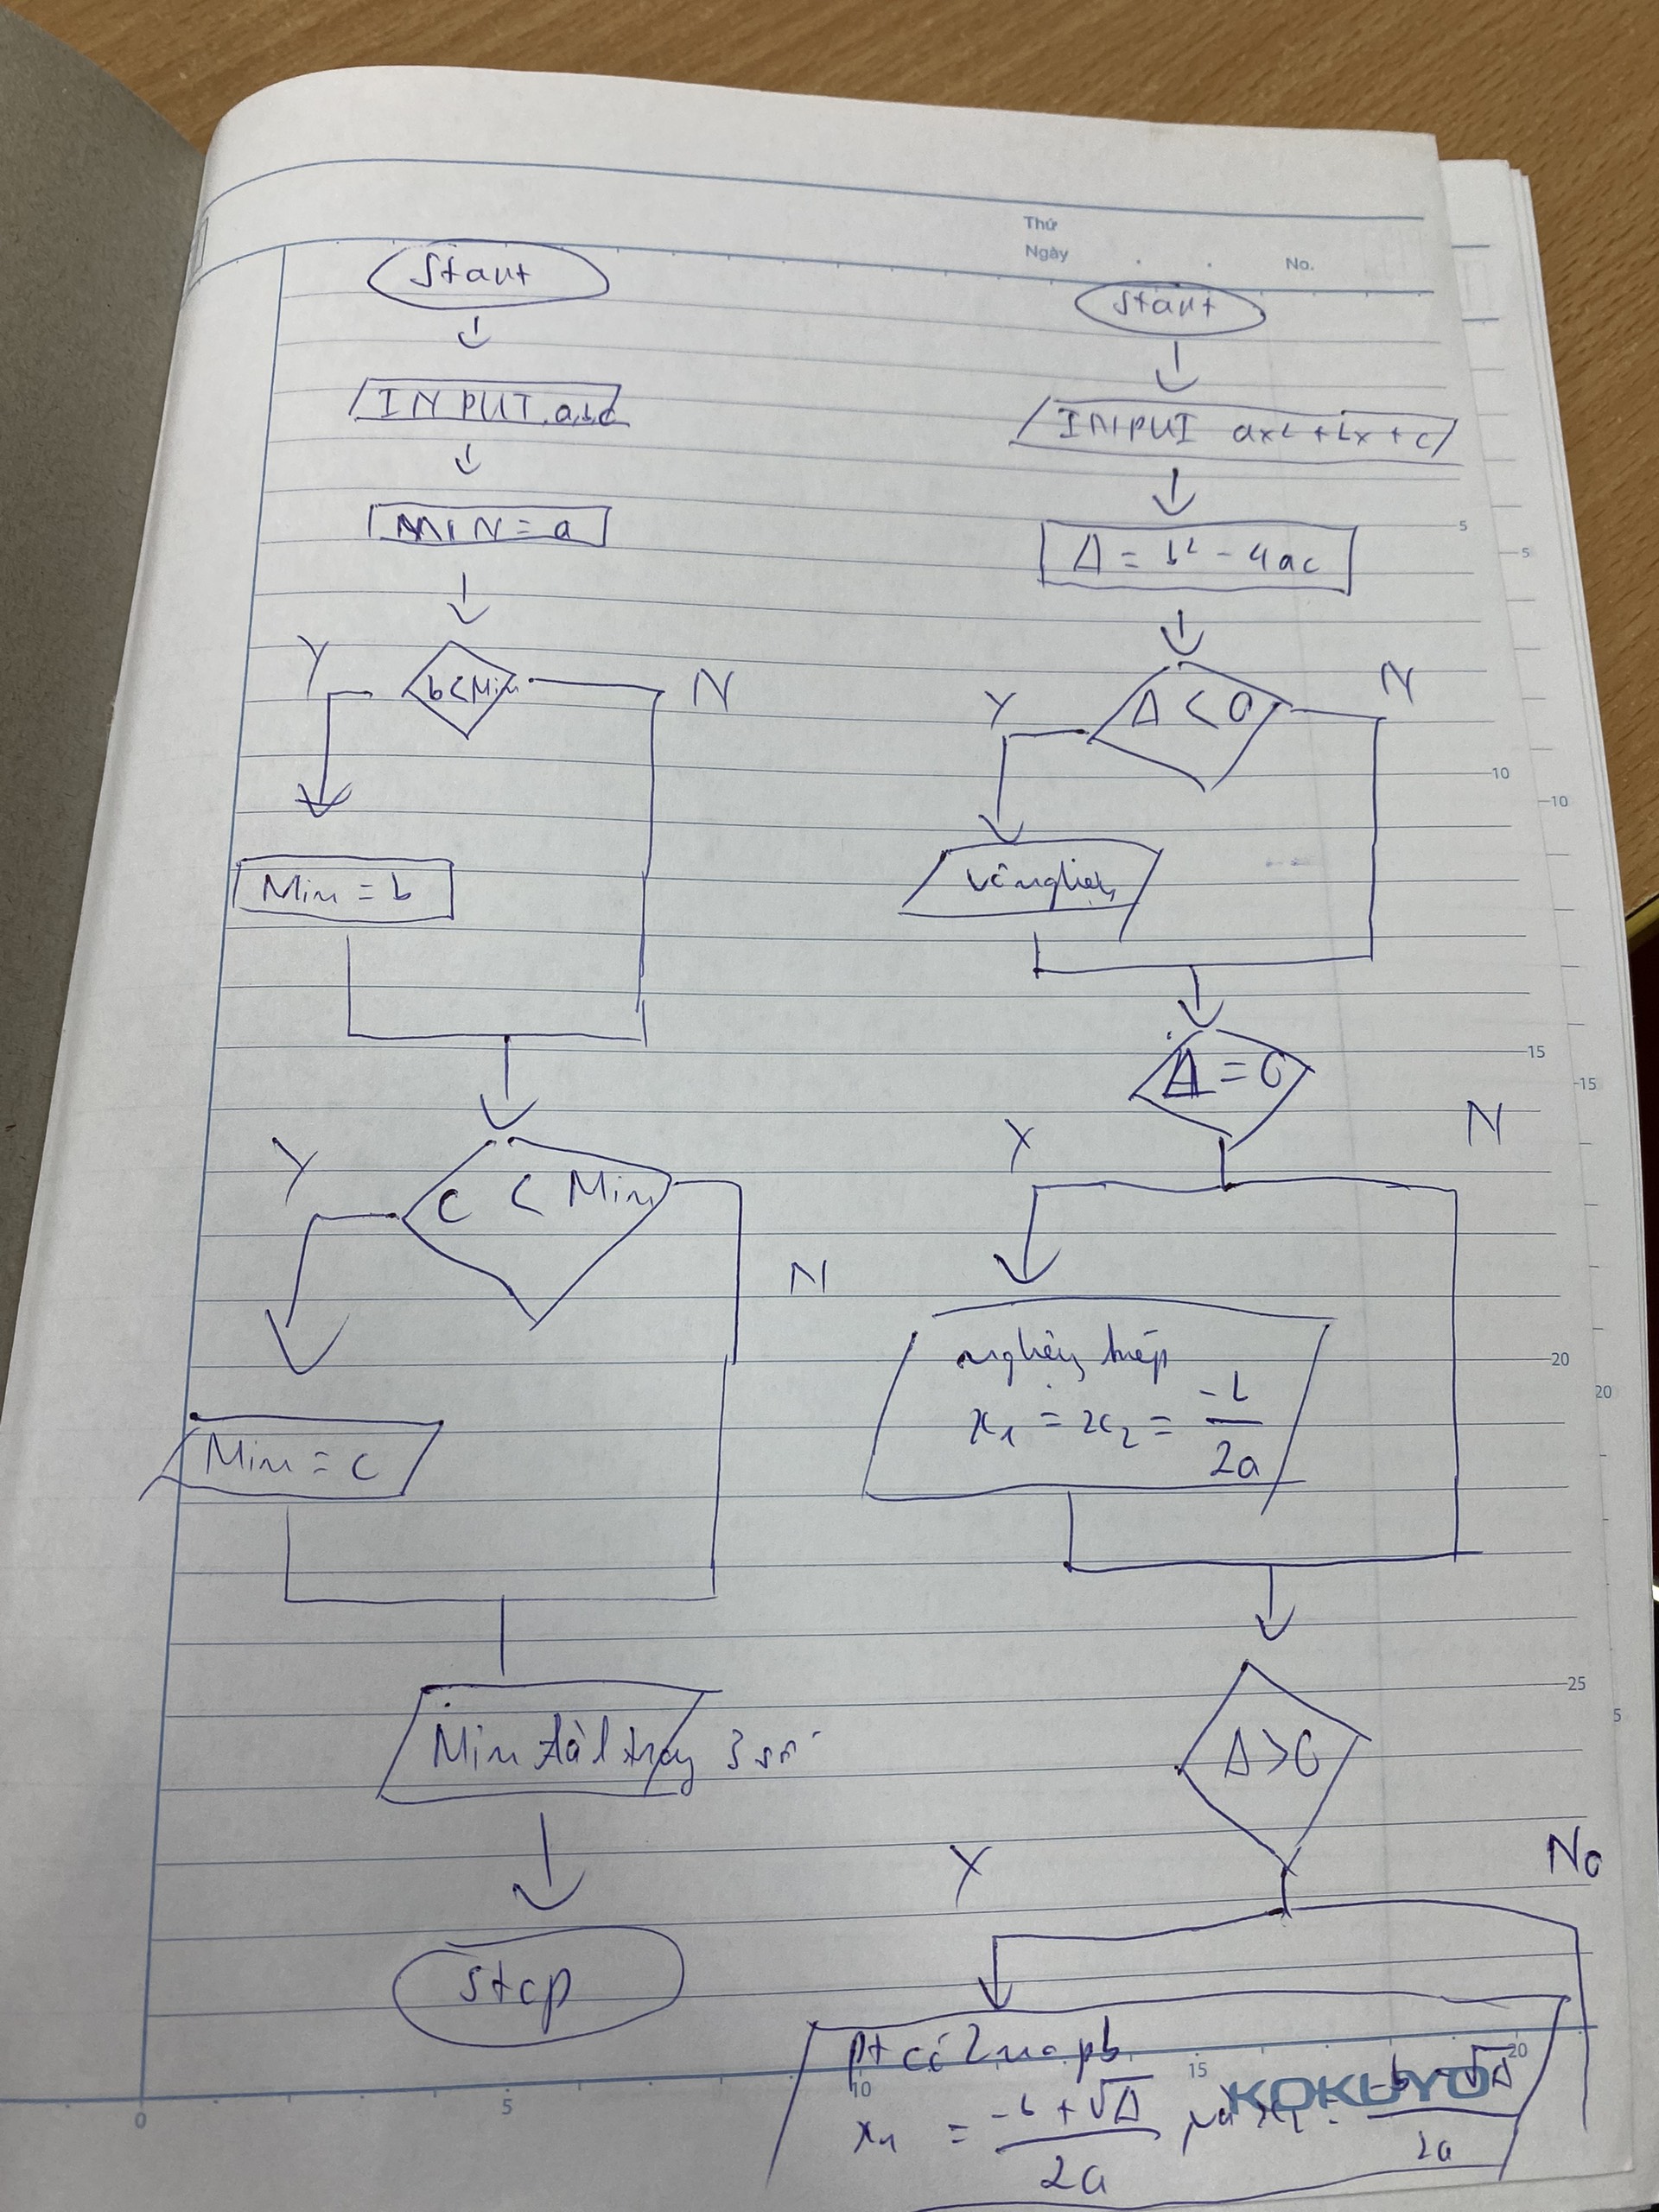 Thứ
Ngày . . No.
Start
INPUT a,b,c
MIN = a
b < Min
Y
N
Min = b
c < Min
Y
N
Min = c
Min 3 số
Stop
Start
INPUT ax² + bx + c
Δ = b² - 4ac
Δ < 0
Y
N
vô nghiệm
Δ = 0
Y
N
nghiệm kép
x₁ = x₂ = -b / 2a
Δ > 0
Y
No
pt có 2 no pb
x₁ = -b + √Δ / 2a và x₂ = -b - √Δ / 2a
KOKUYO
5
10
15
20
25
5
10
15
20
5
0
5
10
15
20